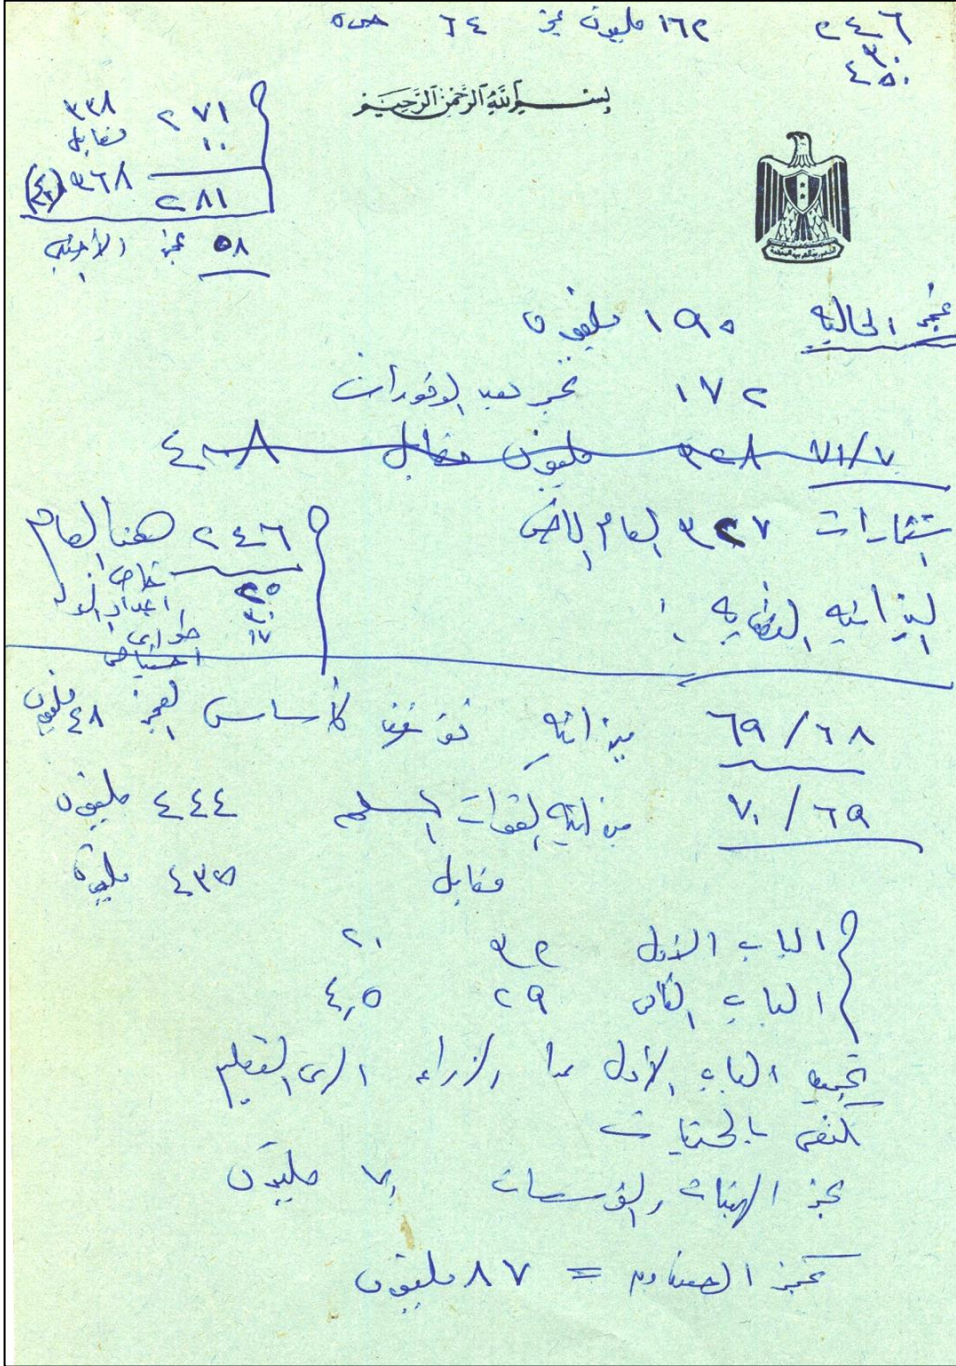 ٢٤٦ ١٦٢ مليون عجز ٦٤
٣٠
٤٥٠
بسم الله الرحمن الرحيم
٢٧١ ٣٣٨
١٠ مقابل
٢٨١ ٣٦٨
٥٨ عجز الأجنبي
عجز الحالية ١٩٥ مليون
١٧٢ عجز بعد الوفورات
٧١/٧٠ ٣٢٨ مليون مقابل ٤٠٨
استثمارات ٣٢٧ العام الماضى
٢٤٦ هذا العام
٢٥ خاص
٣٠ اعداد الدولة
١٧ طوارئ
احتياطى
الميزانية النقدية :
٦٩/٦٨ ميزانية العجز ٤٨ مليون
٧٠/٦٩ ميزانية القوات المسلحة ٤٤٤ مليون
مقابل ٤٣٥ مليون
الباب الأول ٣٢ ٢٠
الباب الثانى ٢٩ ٤,٥
تجميد الباب الأول عدا الزراعة الرى التعليم
عجز الهيئات والمؤسسات ٧٠ مليون
عجز الصناديق = ٨٧ مليون